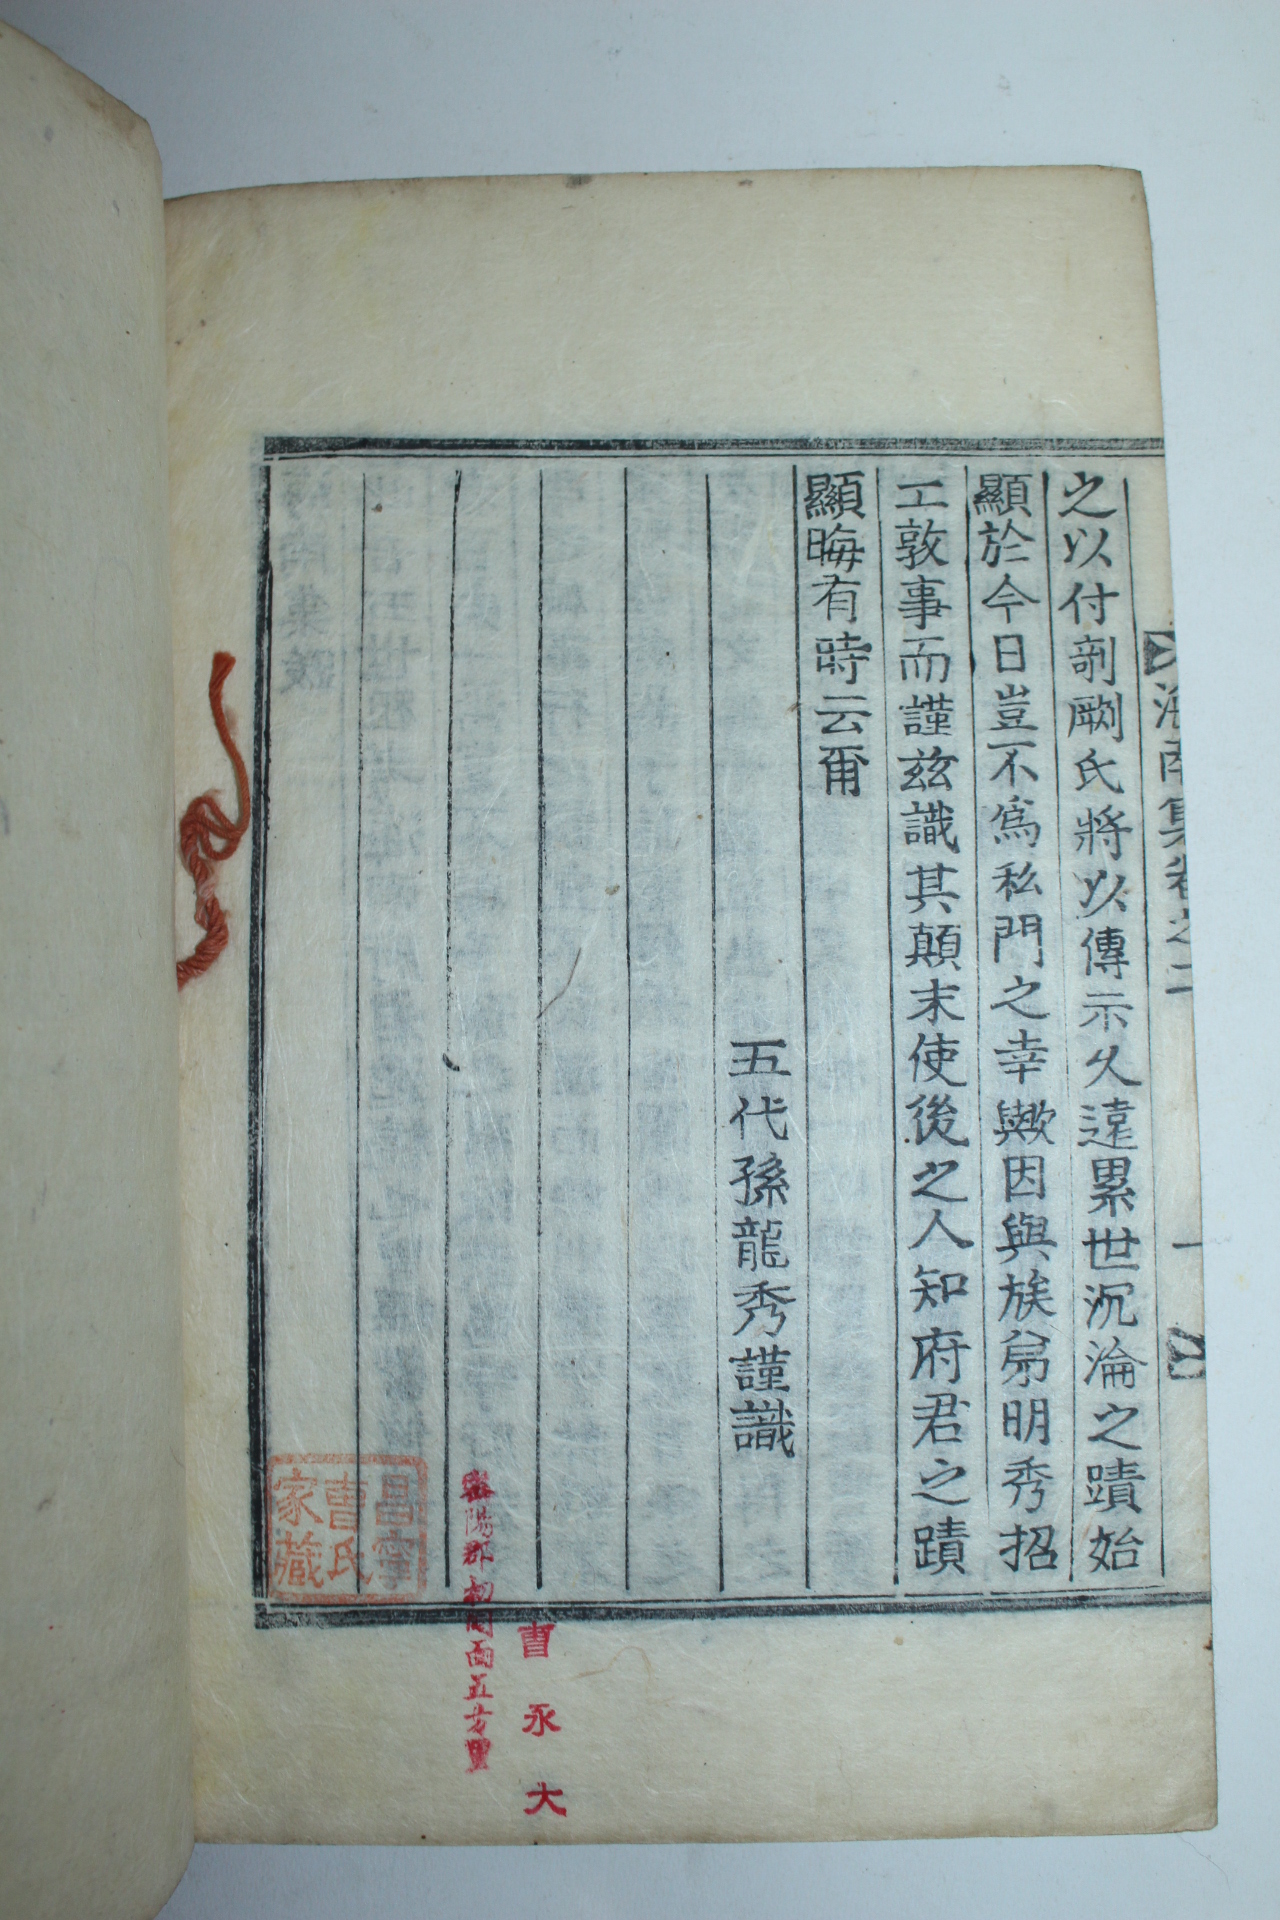 海南集卷之二 一
之以付剞劂氏將以傳示久遠累世沉淪之蹟始
顯於今日豈不爲私門之幸歟因與族弟明秀招
工敦事而謹玆識其顛末使後之人知府君之蹟
顯晦有時云爾
五代孫龍秀謹識
曺永大
密陽郡初同面五方里
昌寧
曺氏
家藏